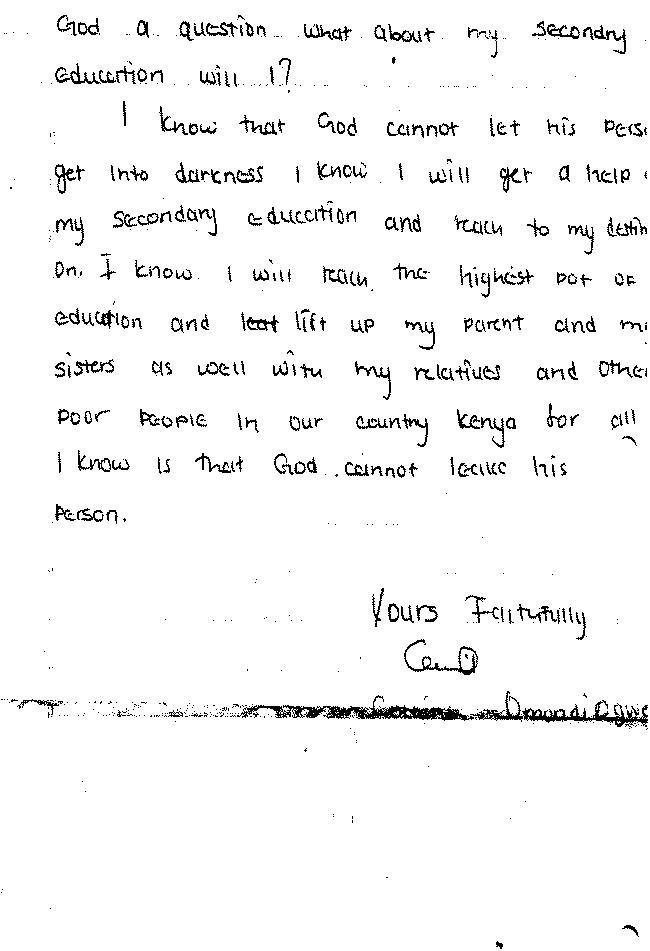 God a question what about my secondry
education will I?
I know that God cannot let his perso
get into darkness I know I will get a help
my secondary education and reach to my destin
on. I know I will reach the highest pot of
education and leat lift up my parent and my
sisters as well with my relatives and othe
poor people in our country Kenya for all
I know is that God cannot leave his
person.
Yours Faithfully
Omondi Ogwe